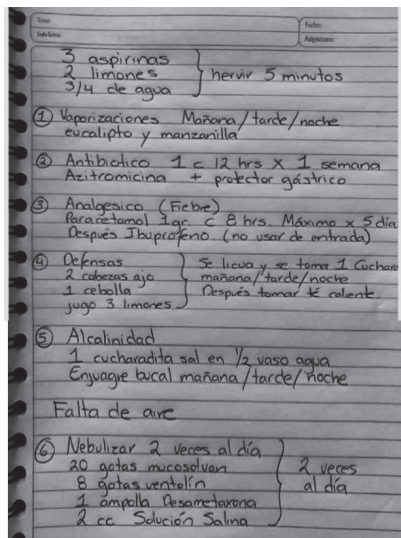 Tema:
Fecha:
Asignatura:
3 aspirinas
2 limones
3/4 de agua
hervir 5 minutos
① Vaporizaciones Mañana/tarde/noche
eucalipto y manzanilla
② Antibiotico 1 c 12 hrs x 1 semana
Azitromicina + protector gástrico
③ Analgesico (Fiebre)
Paracetamol 1gr. c 8 hrs. Máximo x 5 dia
Después Ibuprofeno. (no usar de entrada)
④ Defensas
2 cabezas ajo
1 cebolla
jugo 3 limones
Se licua y se toma 1 Cuchara
mañana/tarde/noche
Después tomar té caliente.
⑤ Alcalinidad
1 cucharadita sal en 1/2 vaso agua
Enjuague bucal mañana/tarde/noche
Falta de aire
⑥ Nebulizar 2 veces al día
20 gotas mucosolvan
8 gotas ventolín
1 ampolla Desametaxona
2 cc Solución Salina
2 veces
al día